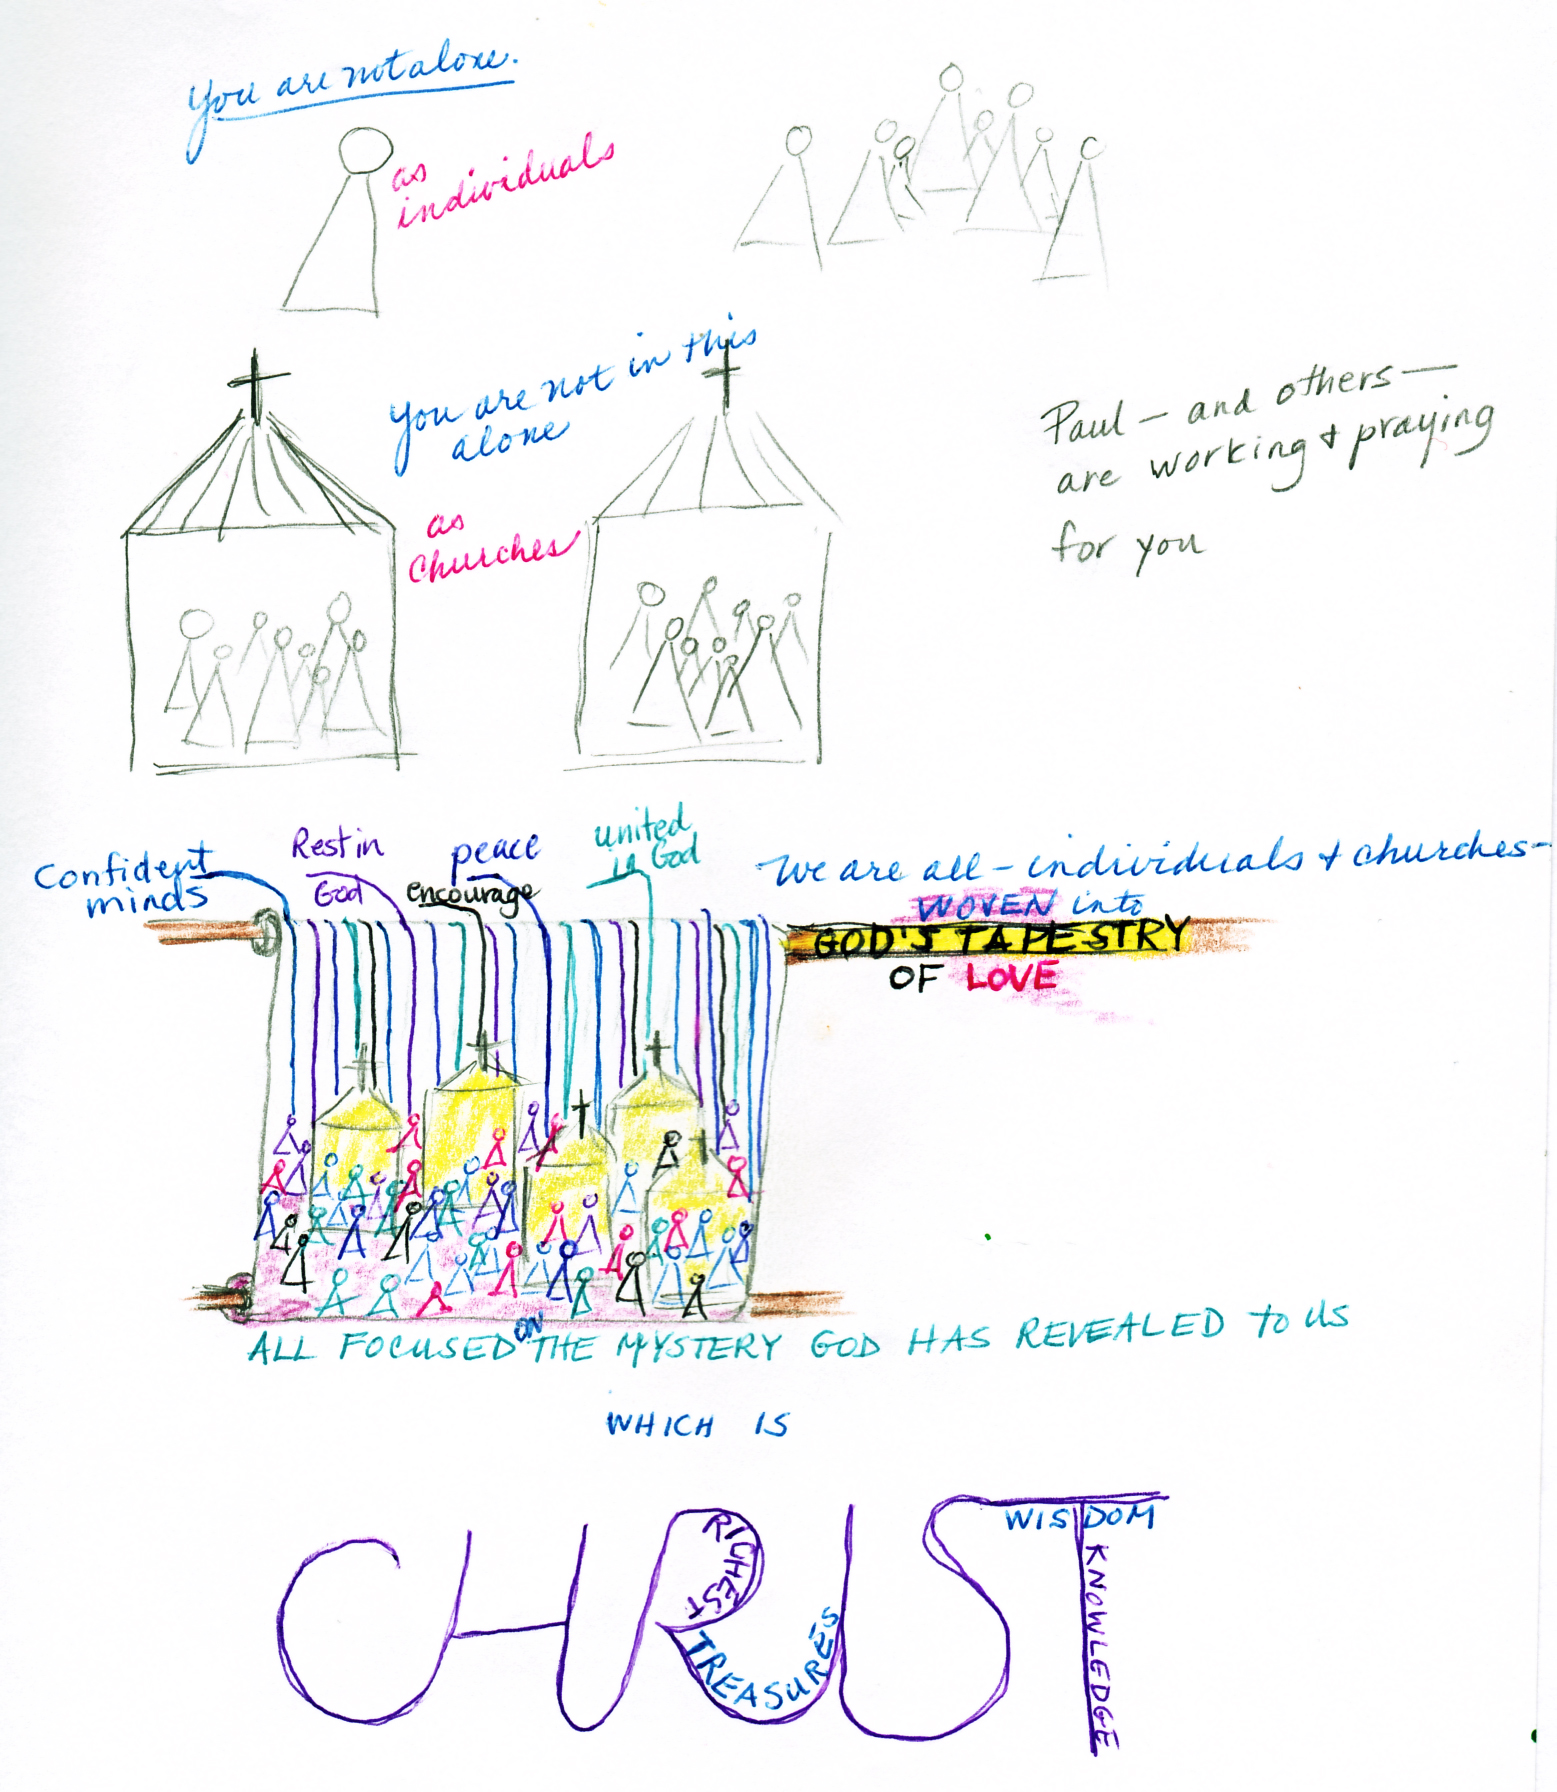 You are not alone.
as
individuals
You are not in this
alone
as
Churches
Paul — and others —
are working + praying
for you
Confident
minds
Rest in
God
encourage
peace
united
in God
We are all - individuals + churches -
WOVEN into
GOD'S TAPESTRY
OF LOVE
ALL FOCUSED ON THE MYSTERY GOD HAS REVEALED to us
WHICH IS
CHRIST
RICHEST
TREASURES
WISDOM
KNOWLEDGE